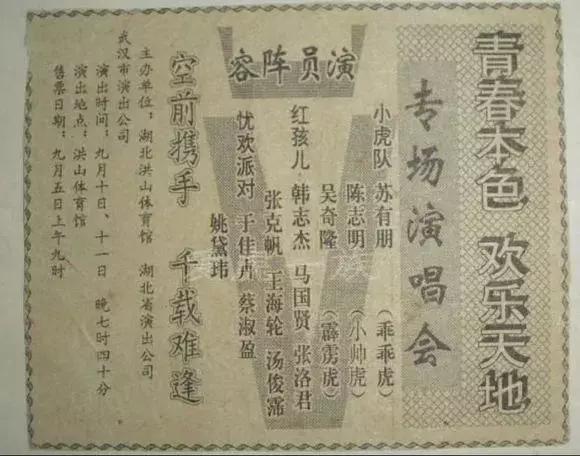 青春本色 欢乐天地
专场演唱会
演员阵容
小虎队·苏有朋（乖乖虎）
陈志明（小帅虎）
吴奇隆（霹雳虎）
红孩儿·韩志杰 马国贤 张洛君
张克帆 王海轮 汤俊霈
忧欢派对 于佳卉 蔡淑盈
姚黛玮
空前携手 千载难逢
主办单位：湖北洪山体育馆 湖北省演出公司
武汉市演出公司
演出时间：九月十日、十一日 晚七时四十分
演出地点：洪山体育馆
售票日期：九月五日上午九时